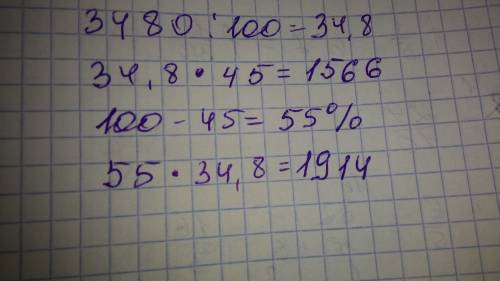 3480 : 100 = 34,8
34,8 • 45 = 1566
100 - 45 = 55%
55 • 34,8 = 1914